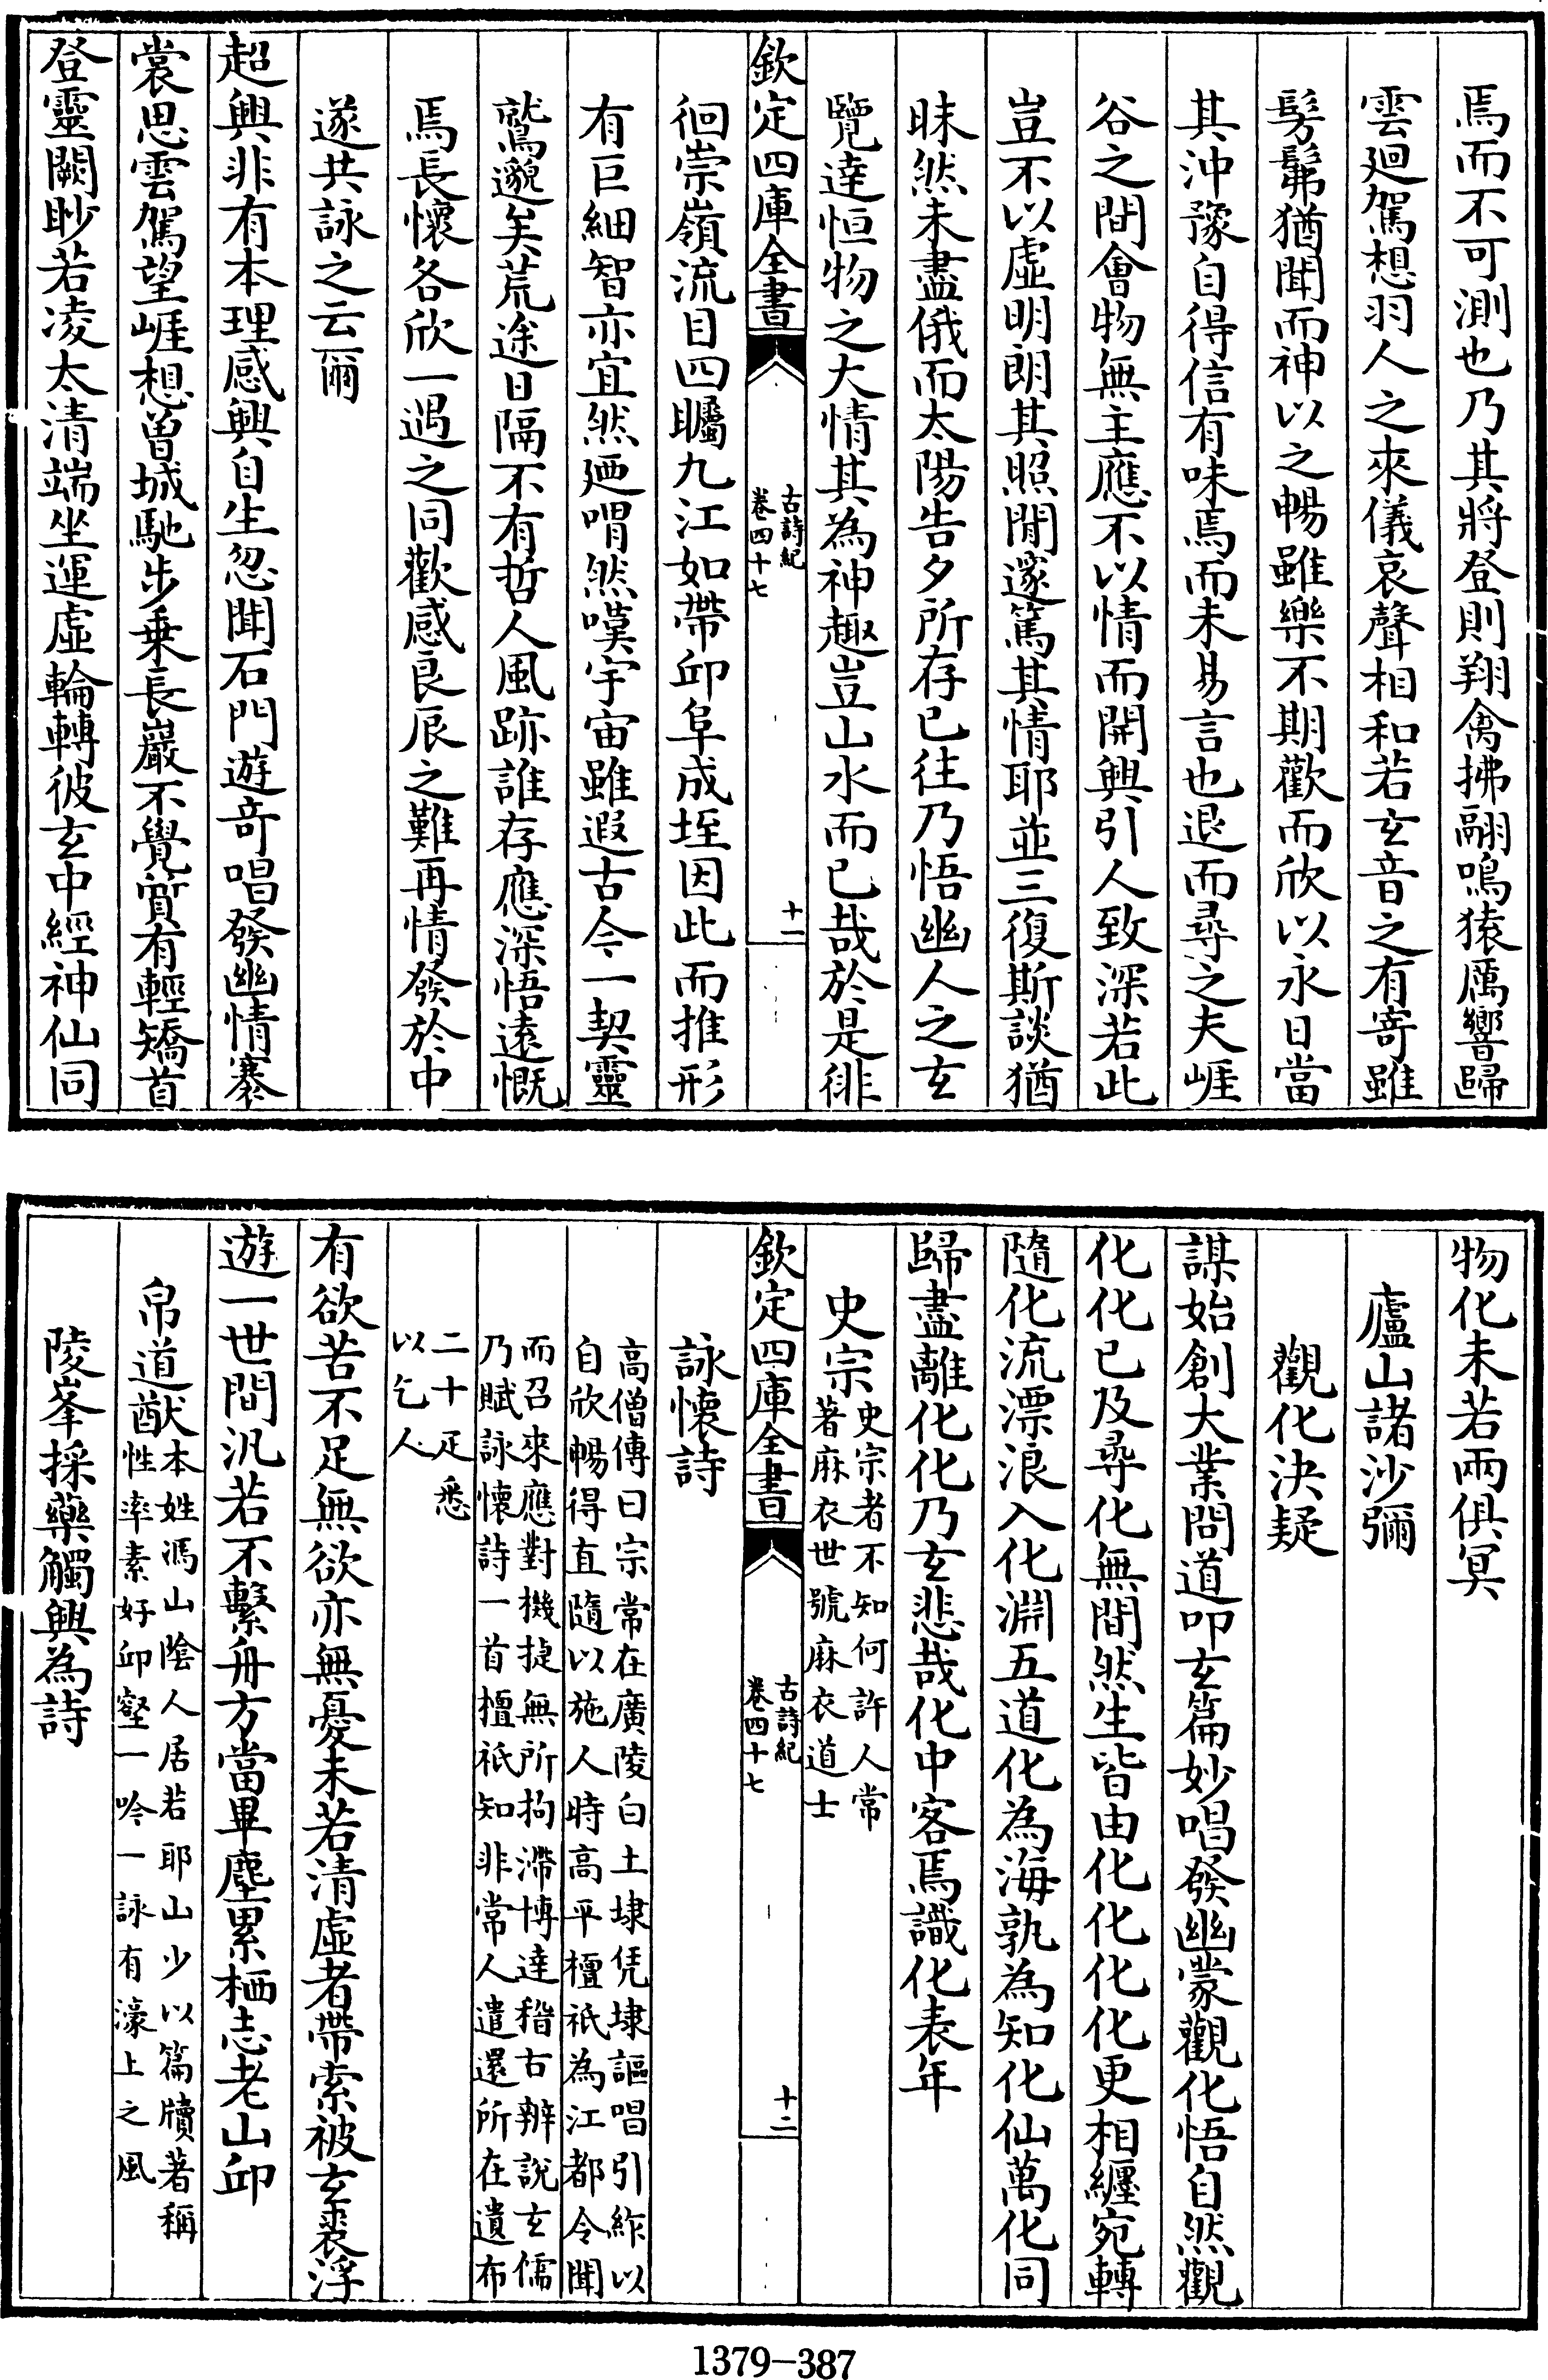 焉而不可測也乃其將登則翔禽拂翮鳴猿厲響歸
雲廻駕想羽人之來儀哀聲相和若玄音之有寄雖
髣髴猶聞而神以之暢雖樂不期歡而欣以永日當
其沖豫自得信有味焉而未易言也退而尋之夫崕
谷之間會物無主應不以情而開興引人致深若此
豈不以虛明朗其照閒邃篤其情耶並三復斯談猶
昧然未盡俄而太陽告夕所存已往乃悟幽人之玄
覽達恒物之大情其為神趣豈山水而已哉於是徘
欽定四庫全書
古詩紀
卷四十七
十一
徊崇嶺流目四矚九江如帶邱阜成垤因此而推形
有巨細智亦宜然廼喟然嘆宇宙雖遐古今一契靈
鷲邈矣荒途日隔不有哲人風跡誰存應深悟遠慨
焉長懷各欣一遇之同歡感良辰之難再情發於中
遂共詠之云爾
超興非有本理感興自生忽聞石門遊奇唱發幽情褰
裳思雲駕望崕想曾城馳步乗長巖不覺質有輕矯首
登靈闕眇若凌太清端坐運虛輪轉彼玄中經神仙同
物化未若兩俱冥
廬山諸沙彌
觀化決疑
謀始創大業問道叩玄篇妙唱發幽蒙觀化悟自然觀
化化已及尋化無間然生皆由化化化化更相纏宛轉
隨化流漂浪入化淵五道化為海孰為知化仙萬化同
歸盡離化化乃玄悲哉化中客焉識化表年
史宗史宗者不知何許人常
著麻衣世號麻衣道士
欽定四庫全書
古詩紀
卷四十七
十二
詠懷詩
高僧傳曰宗常在廣陵白土埭凭埭謳唱引綍以
自欣暢得直隨以施人時高平檀祇為江都令聞
而召來應對機捷無所拘滯博達稽古辨說玄儒
乃賦詠懷詩一首檀祇知非常人遣還所在遺布
二十疋悉
以乞人
有欲苦不足無欲亦無憂未若清虛者帶索被玄裘浮
遊一世間汎若不繫舟方當畢塵累栖志老山邱
帛道猷本姓馮山陰人居若耶山少以篇牘著稱
性率素好邱壑一吟一詠有濠上之風
陵峯採藥觸興為詩
1379—387